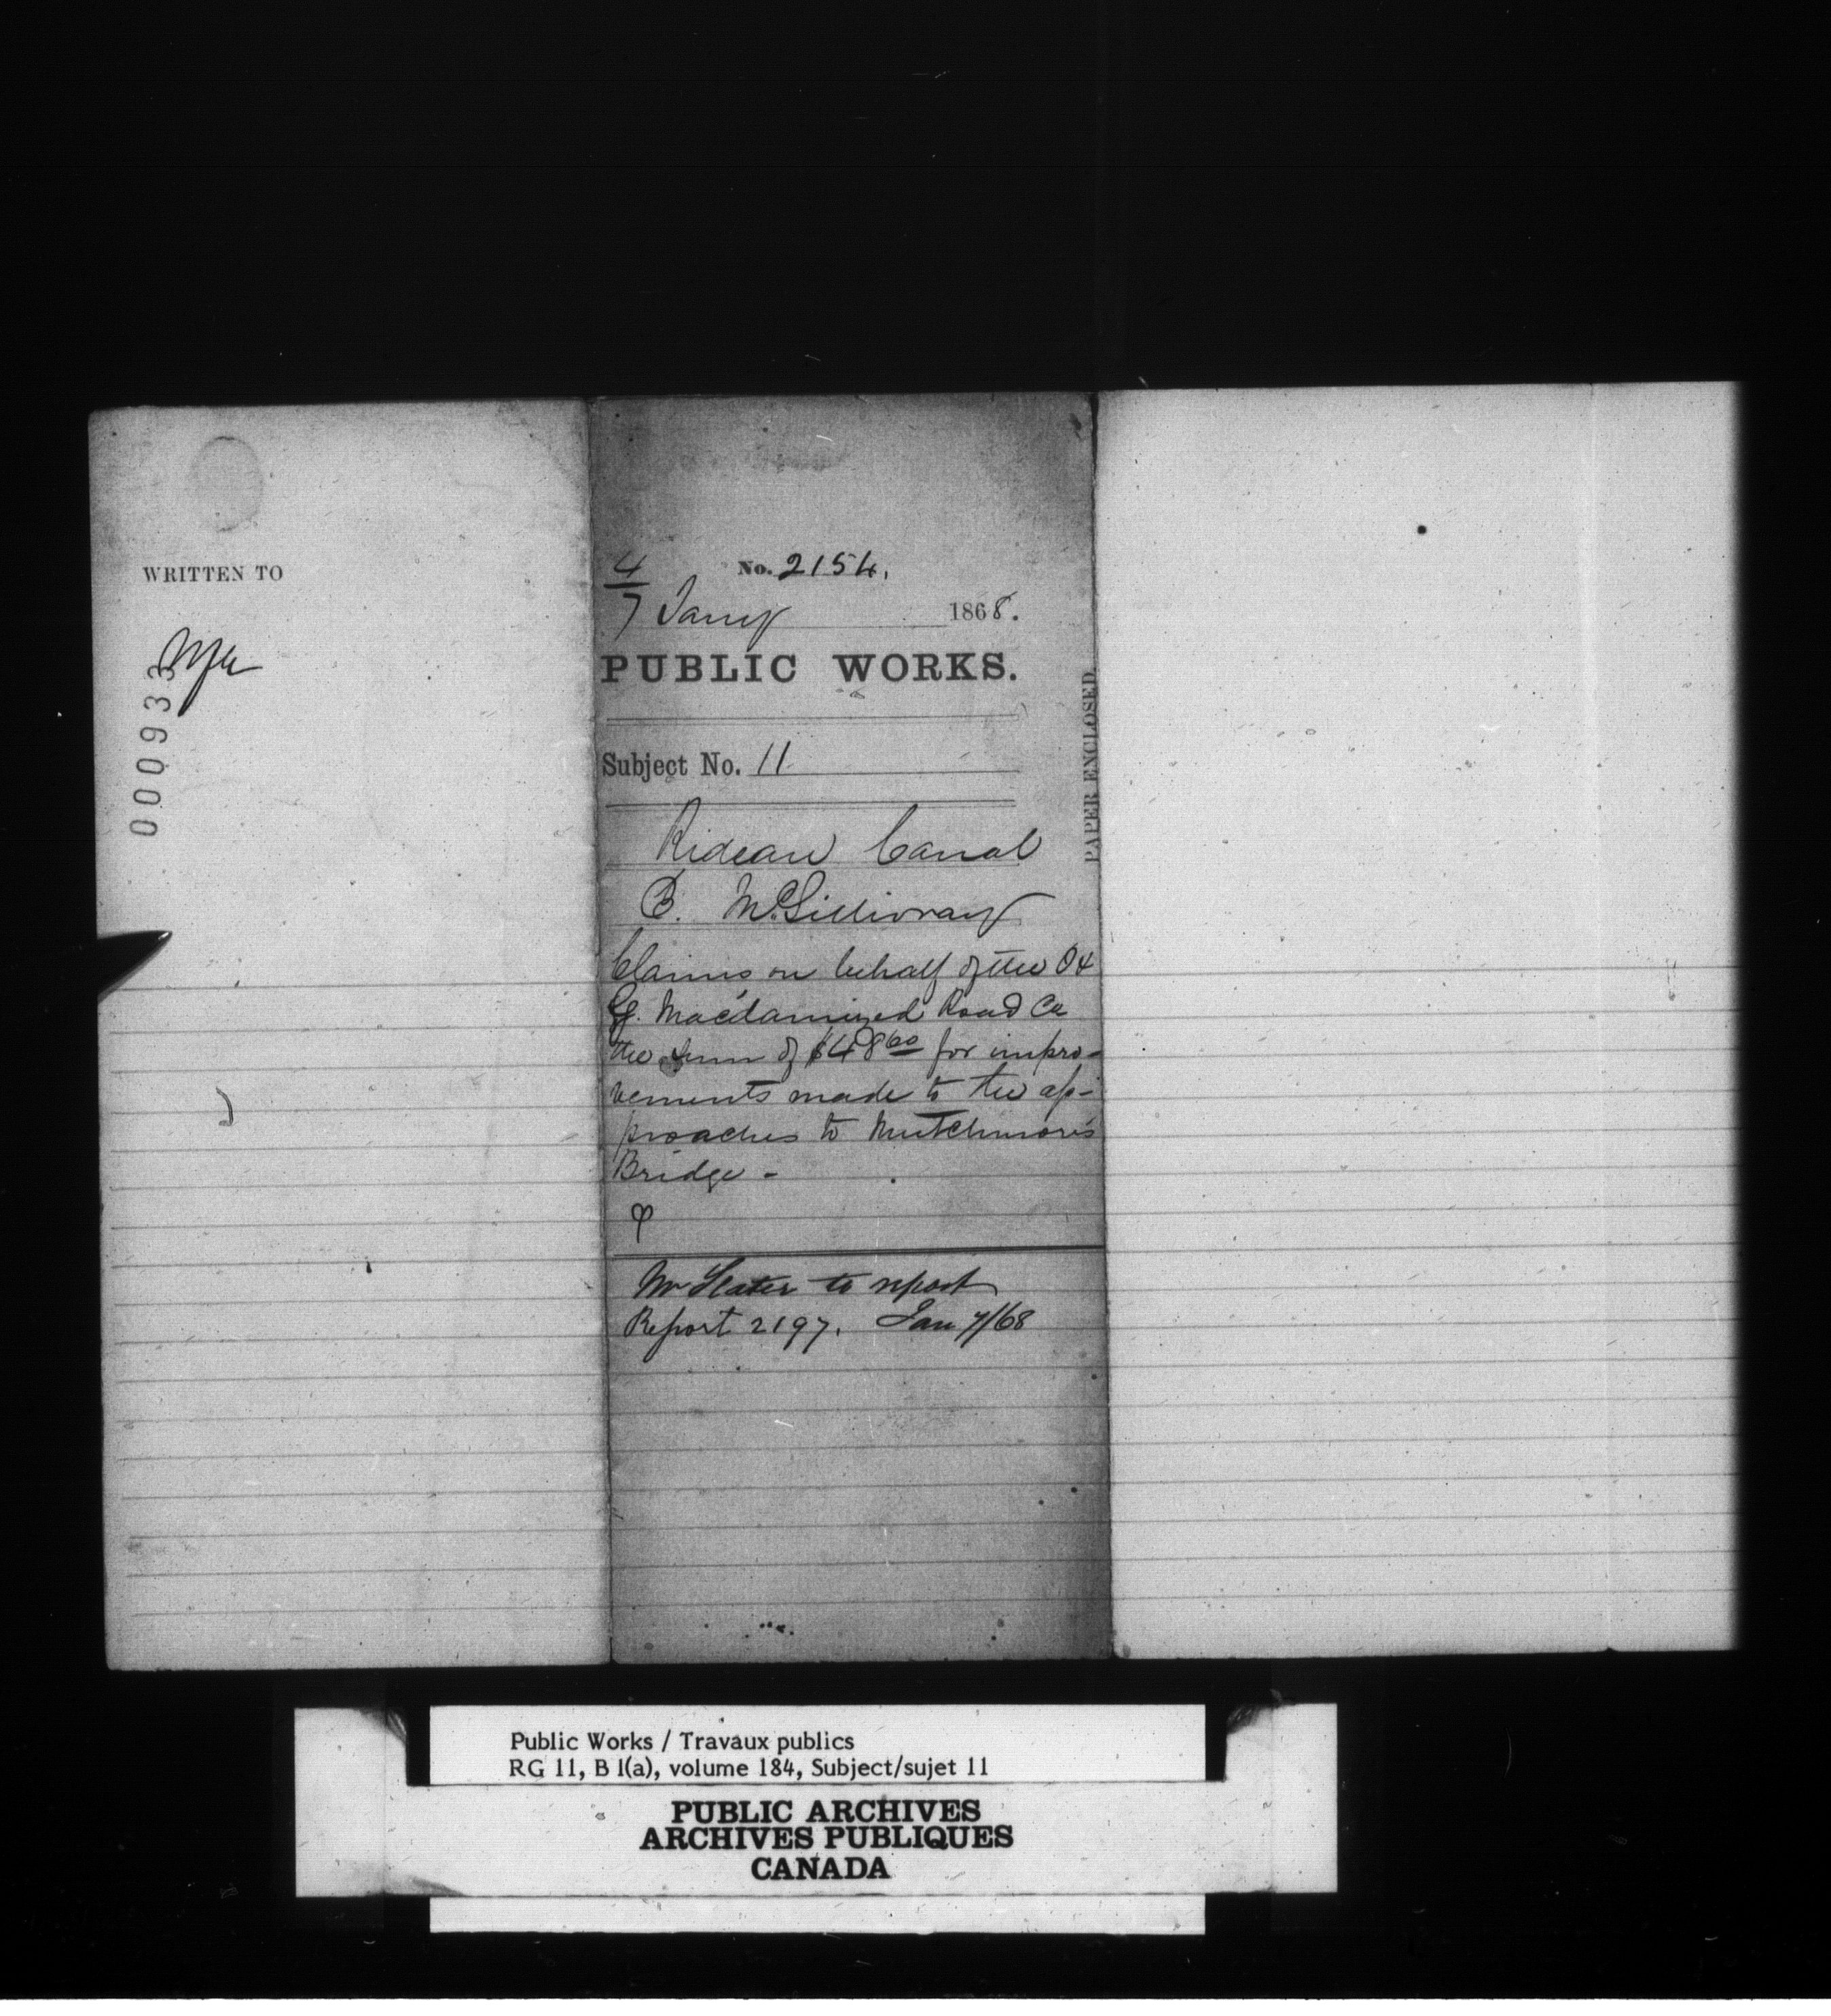 WRITTEN TO
000933
4/7 Jany 1868.
No. 2154.
PUBLIC WORKS.
Subject No. 11
PAPER ENCLOSED.
Rideau Canal
B. McGillivray
Claims on behalf of the O &
G. Macdamized Road Co
the sum of $48 60 for impro-
vements made to the ap-
proaches to Mutchmor's
Bridge -
Mr Slater to report
Report 2197. Jan 7/68
Public Works / Travaux publics
RG 11, B 1(a), volume 184, Subject/sujet 11
PUBLIC ARCHIVES
ARCHIVES PUBLIQUES
CANADA